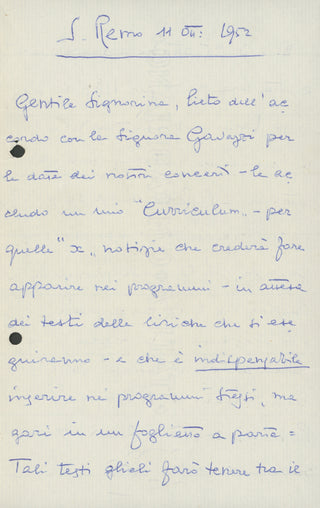 S. Remo 11 Ott: 1952
Gentile Signorina, lieto dell'ac
cordo con la Signora Gavazzi per
le date dei nostri concerti - le ac
cludo un mio "Curriculum" - per
quelle "x" notizie che crederà fare
apparire nei programmi - in attesa
dei testi delle liriche che si ese
guiranno - e che è indispensabile
inserire nei programmi stessi, ma
gari in un foglietto a parte =
Tali testi glieli farò tenere tra il